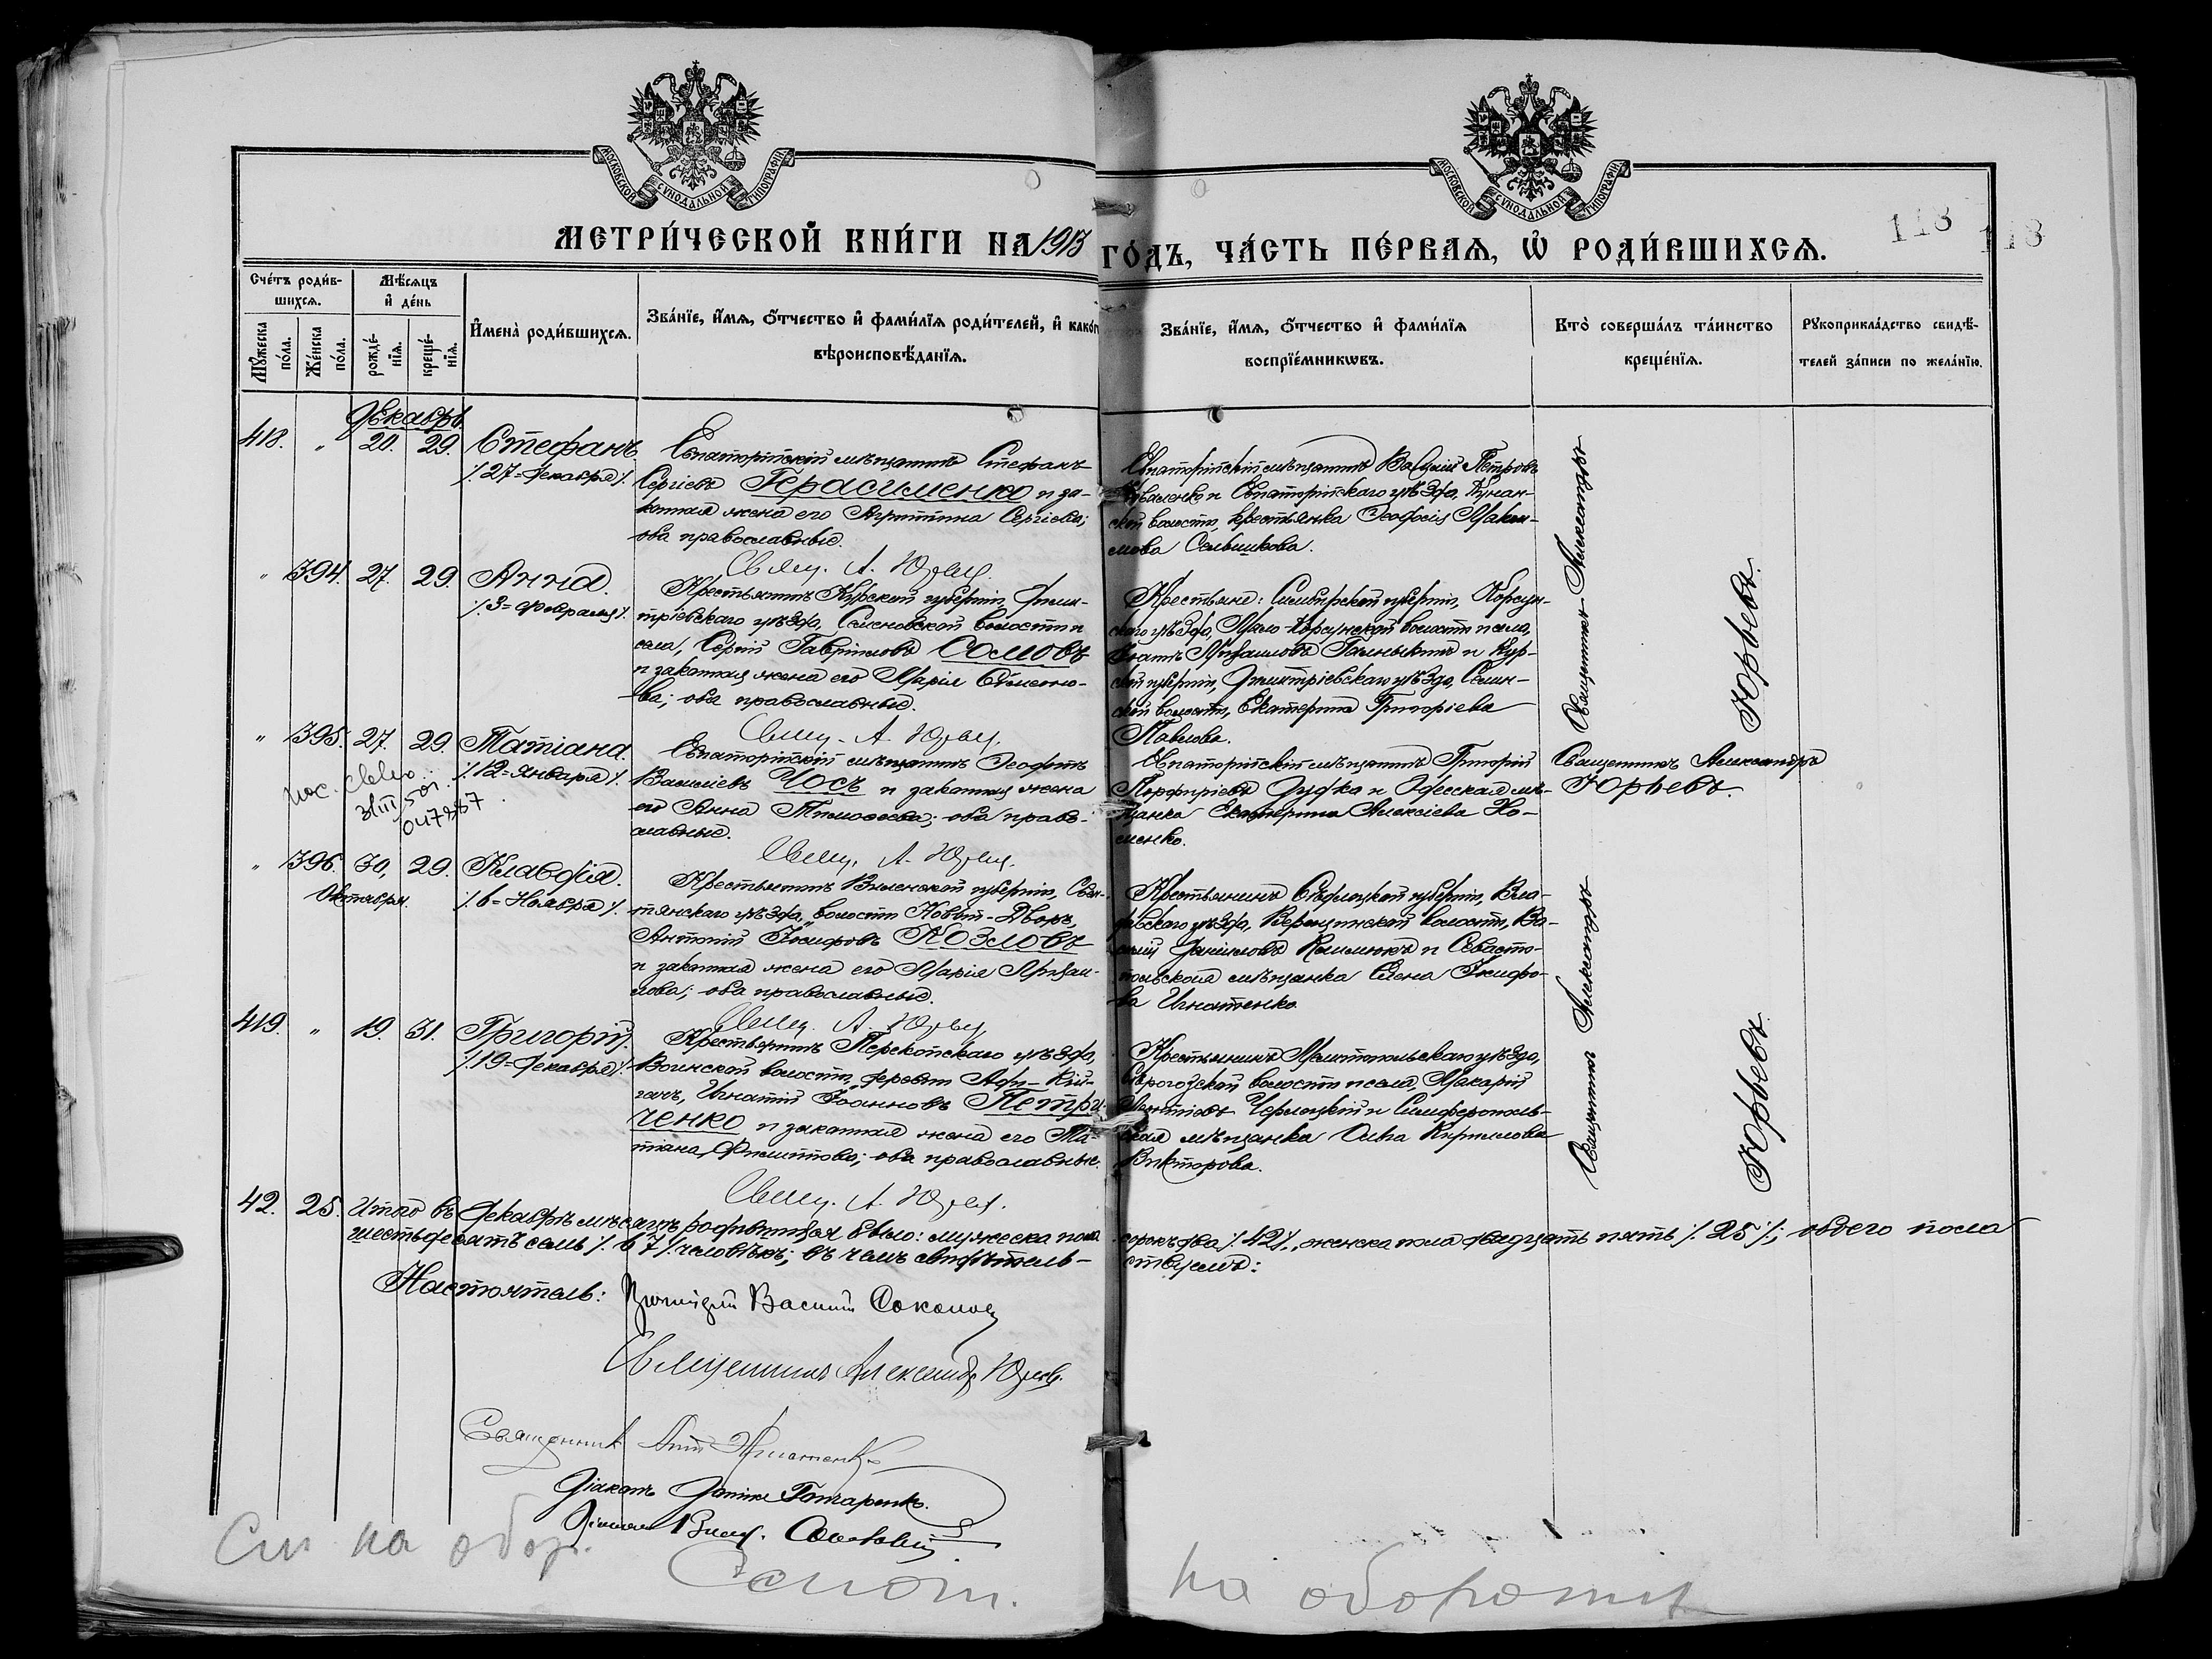 МОСКОВСКОЙ СѴНОДАЛЬНОЙ ТИПОГРАФІИ
МОСКОВСКОЙ СѴНОДАЛЬНОЙ ТИПОГРАФІИ
118 118
МЕТРИ́ЧЕСКОЙ КНИ́ГИ НА 1913 ГО́ДЪ, ЧА́СТЬ ПЕ́РВАЯ, Ѡ҆ РОДИ́ВШИХСЯ.
Сче́тъ роди́в-
шихся.
Мꙋ́жеска по́ла.
Же́нска по́ла.
Мѣ́сяцъ
и҆ де́нь
рожде́-
нїя.
креще́-
нїя.
И҆мена̀ роди́вшихся.
Зва́нїе, и҆́мя, о҆́тчество и҆ фами́лїя роди́телей, и҆ како́гѡ
вѣроисповѣ́данїя.
Зва́нїе, и҆́мя, о҆́тчество и҆ фами́лїя
воспрїе́мникѡвъ.
Кто̀ соверша́лъ та́инство
креще́нїя.
Рꙋкоприкла́дство свидѣ́-
телей за́писи по жела́нїю.
Декабрь
418. " 20. 29. Стефанъ.
/27=Декабря/.
Евпаторійскій мѣщанинъ Стефанъ
Сергіевъ Герасименко и за-
конная жена его Агриппина Сергіева;
оба православные.
Свящ. А. Юрьевъ.
Евпаторійскій мѣщанинъ Василій Петровъ
и Евпаторійскаго уѣзда, Кунан-
ской волости, крестьянка Ѳеодосія Макси-
мова Сальникова.
Священникъ Александръ
Юрьевъ.
" 394. 27. 29. Анна.
/3=Февраля/.
Крестьянинъ Курской губерніи, Дми-
тріевскаго уѣзда, Селеновской волости и
села, Сергій Гавріиловъ Сомовъ
и законная жена его Марія Симео-
ва; оба православные.
Свящ. А. Юрьевъ.
Крестьяне: Симбирской губерніи, Корсун-
скаго уѣзда, Мало-Корсунской волости и села,
Михаиловъ и Кур-
ской губерніи, Дмитріевскаго уѣзда, Селин-
ской волости, Екатерина Григоріева
Павлова.
" 395. 27. 29. Татіана.
/12=Января/.
047387
Евпаторійскій мѣщанинъ Ѳеофанъ
Василіевъ Чосъ и законная жена
его Анна Тимоѳеева; оба право-
славные.
Свящ. А. Юрьевъ.
Евпаторійскій мѣщанинъ Григорій
Порфиріевъ Дудка и Одесская мѣ-
щанка Екатерина Алексіева Хо-
менко.
Священникъ Александръ
Юрьевъ.
" 396. 30. 29. Клавдія.
Октября. /6=Ноября/.
Крестьянинъ Виленской губерніи, Свен-
тянскаго уѣзда, волости Новый-Дворъ,
Антоній Іосифовъ Козловъ
и законная жена его Марія Михаи-
лова; оба православные.
Свящ. А. Юрьевъ.
Крестьянинъ Сѣдлецкой губерніи, Вло-
давскаго уѣзда, волости, Ва-
силій Даніиловъ Климюкъ и Севасто-
польская мѣщанка Елена Іосифо-
ва Игнатенко.
Священникъ Александръ
Юрьевъ.
419. " 19. 31. Григорій.
/19=Декабря/.
Крестьянинъ Перекопскаго уѣзда,
Воинской волости, деревни Адж-Кій-
гачъ, Игнатій Іоанновъ Петри-
ченко и законная жена его Та-
тіана Филиппова; оба православные.
Свящ. А. Юрьевъ.
Крестьянинъ Мелитопольскаго уѣзда,
Серогозской волости и села, Макарій
и Симферополь-
ская мѣщанка Ольга Кириллова
Викторова.
42. 25. Итого въ Декабрѣ мѣсяцѣ родившихся было: мужеска пола сорокъ два /42/, женска пола двадцать пять /25/; обоего пола
шестьдесятъ семь /67/ человѣкъ; въ чемъ свидѣтель- ствуемъ:
Настоятель: Протоіерей Василій Соколовъ
Священникъ Александръ Юрьевъ.
Священникъ Игнатенко
Діаконъ Гончаренко.
Діаконъ
См на обор.
Смот. на оборотѣ